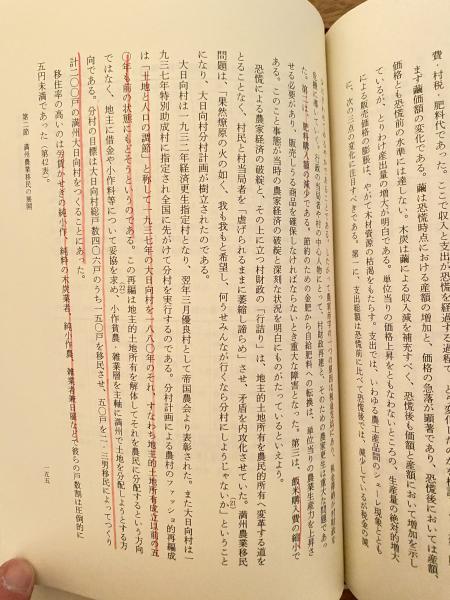 費・村税・肥料代であった。ここで収入と支出が恐慌を経過する過程で
まず繭価額の変化である。繭は恐慌時点における産額の増加と、価格の急落が顕著であり、恐慌後においては産額、
価格とも恐慌前の水準には達し
ない。木炭は繭による収入減を補充すべく、恐慌後も価額と産額において増加を示し
ているが、とりわけ産出量の増大が明白である。単位当りの価格上昇をともなわないところの、生産量の絶対的増大
による販売価格の膨張は、やがて木材資源の枯渇をもたらす。支出では、いわゆる農工産品間のシェーレ現象とともに、
次の三点の変化に注目すべきである。第一に、支出総額は恐慌前に比べて恐慌後では、減少しているが税金の減
第二は、肥料購入額の減少である。節約のための金肥から自給肥料への転換は、単位当りの農業生産力を上昇さ
せる必要があり、販売しうる商品を確保しなければならないときに重大な障害となった。第三は、飯米購入費の縮小で
ある。このこと事態が当時の農家経済の破綻と深刻な状況を明白にものがたっているといえよう。
恐慌による農家経済の破綻と、その上に立つ村財政の「行詰り」は、地主的土地所有を農民的所有へ変革する道を
とることなく、村民と村当局者を「虐げられるままに萎縮し諦らめ」させ、矛盾を内攻化させていた。満州農業移民
問題は、「果然燎原の火の如く、我も我もと希望し、何うせみんなが行くなら分村にしようじゃないか」ということ
になり、大日向村分村計画が樹立されたのである。
大日向村は一九三二年経済更生指定村となり、翌年三月優良村として帝国農会より表彰された。また大日向村は一
九三七年特別助成村に指定され全国に先がけて分村を実行するのである。分村計画による農村のファッショ的再編成
は「土地と人口の調節」と称して一九三七年の大日向村を一八八〇年のそれ、すなわち地主的土地所有成立以前の五
〇年も前の状態にもどそうというのである。この再編は地主的土地所有を解体してそれを農民に分配するという方向
ではなく、地主に借金や小作料等について妥協を求め、小作貧農、雑業層を主軸に満州で土地を分配しようとする方
向である。分村の目標は大日向村総戸数四〇六戸のうち一五〇戸を移民させ、五〇戸を二・三男移民によってつくり
計二〇〇戸の満州大日向村をつくることにあった。
移住率の高いのは労賃かせぎの純小作、純粋の木炭業者、純小作農、雑業者兼日雇などで彼らの戸数割は圧倒的に
五円未満であった（第七表）。
第二節 満州農業移民の展開
一五五